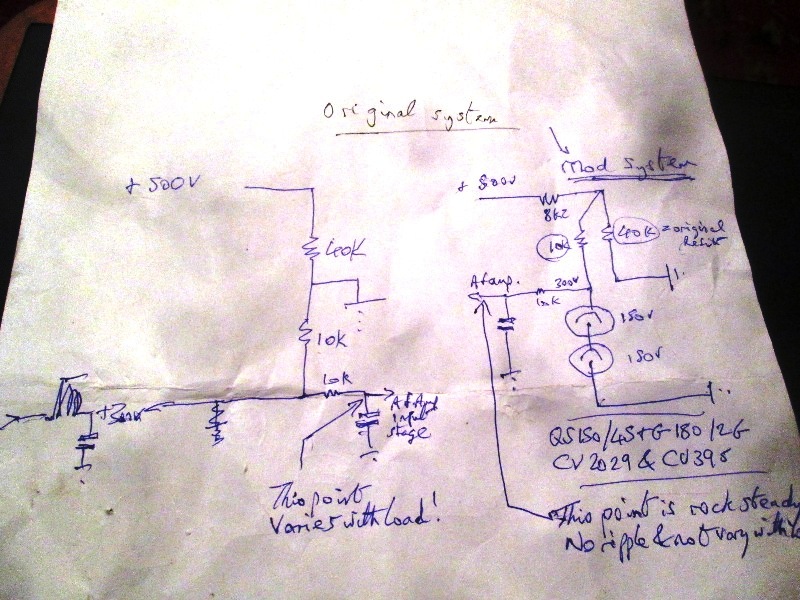 Original system
Mod system
+ 500V
+ 500V
8k2
40K
10K
40K = original
Resist
Af amp.
300V
10K
150V
150V
10K
10K
+300V
Af Amp
input
stage
QS150/45 & G180/2G
CV2029 & CV395
This point
Varies with load!
This point is rock steady
No ripple & not vary with